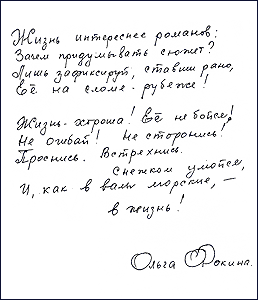 Жизнь интереснее романов:
Зачем придумывать сюжет?
Лишь зафиксируй, ставши рано,
Её на сломе-рубеже!
Жизнь-хороша! Её не бойся!
Не охай! Не сторонись!
Проснись. Встрехнись.
Снежком умойся,
И, как в валы морские, –
в жизнь!
Ольга Фокина.